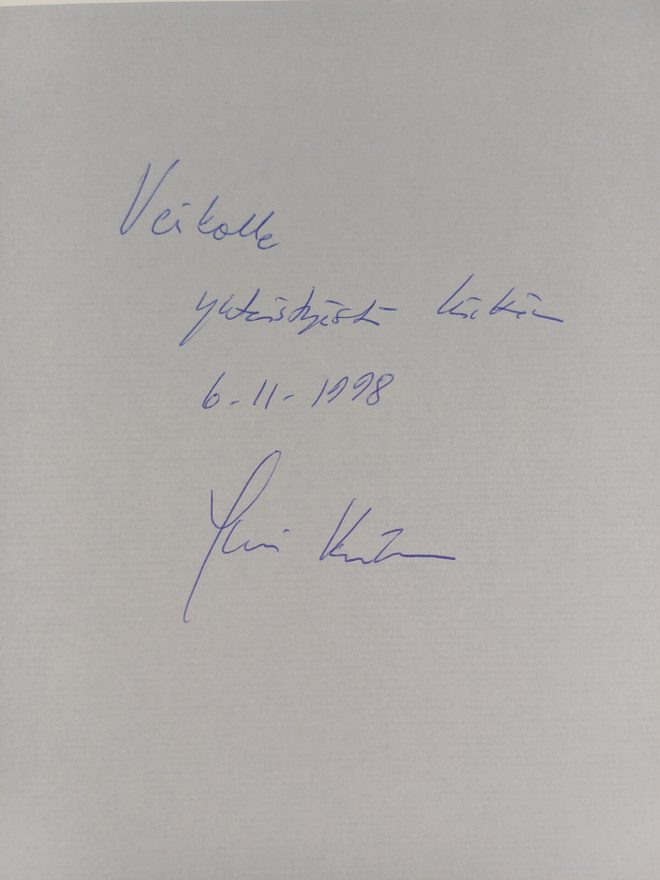 Veikolle
yhteistyöstä kiittäen
6-11-1998